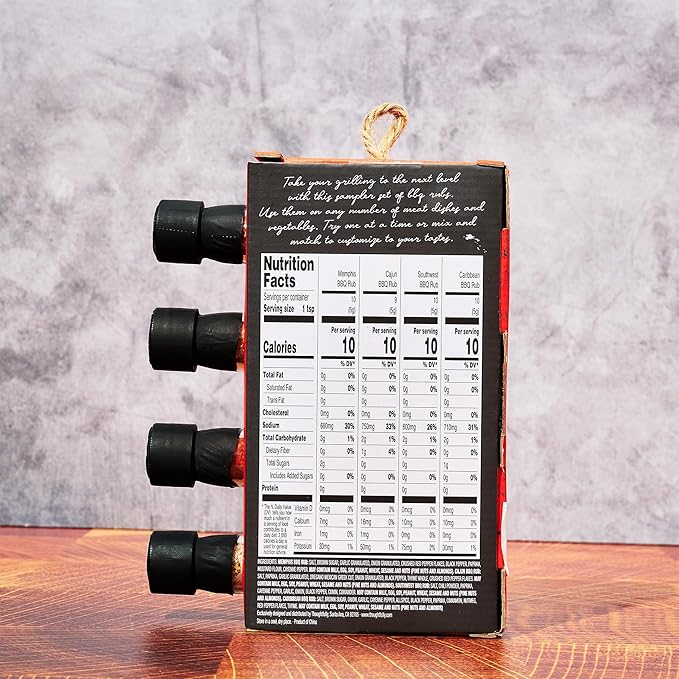 Take your grilling to the next level
with this sampler set of bbq rubs.
Use them on any number of meat dishes and
vegetables. Try one at a time or mix and
match to customize to your tastes.
Nutrition Facts Memphis BBQ Rub Cajun BBQ Rub Southwest BBQ Rub Caribbean BBQ Rub
Servings per container 10 9 10 10
Serving size 1 tsp (5g) (5g) (5g) (5g)
Per serving Per serving Per serving Per serving
Calories 10 10 10 10
% DV* % DV* % DV* % DV*
Total Fat 0g 0% 0g 0% 0g 0% 0g 0%
Saturated Fat 0g 0% 0g 0% 0g 0% 0g 0%
Trans Fat 0g 0g 0g 0g
Cholesterol 0mg 0% 0mg 0% 0mg 0% 0mg 0%
Sodium 680mg 30% 750mg 33% 600mg 26% 710mg 31%
Total Carbohydrate 3g 1% 2g 1% 2g 1% 2g 1%
Dietary Fiber 0g 0% 1g 4% 0g 0% 0g 0%
Total Sugars 2g 0g 0g 1g
Includes Added Sugars 0g 0% 0g 0% 0g 0% 0g 0%
Protein 0g 0g 0g 0g
Vitamin D 0mcg 0% 0mcg 0% 0mcg 0% 0mcg 0%
Calcium 7mg 0% 16mg 0% 10mg 0% 10mg 0%
Iron 1mg 0% 1mg 0% 0mg 0% 0mg 0%
Potassium 30mg 1% 50mg 1% 75mg 2% 30mg 1%
* The % Daily Value
(DV) tells you how
much a nutrient in
a serving of food
contributes to a
daily diet. 2,000
calories a day is
used for general
nutrition advice.
INGREDIENTS: MEMPHIS BBQ RUB: SALT, BROWN SUGAR, GARLIC GRANULATED, ONION GRANULATED, CRUSHED RED PEPPER FLAKES, BLACK PEPPER, PAPRIKA,
MUSTARD FLOUR, CAYENNE PEPPER. MAY CONTAIN MILK, EGG, SOY, PEANUT, WHEAT, SESAME AND NUTS (PINE NUTS AND ALMONDS). CAJUN BBQ RUB:
SALT, PAPRIKA, GARLIC GRANULATED, OREGANO MEXICAN GREEK CUT, ONION GRANULATED, BLACK PEPPER, THYME WHOLE, CRUSHED RED PEPPER FLAKES. MAY
CONTAIN MILK, EGG, SOY, PEANUT, WHEAT, SESAME AND NUTS (PINE NUTS AND ALMONDS). SOUTHWEST BBQ RUB: SALT, CHILI POWDER, PAPRIKA,
CAYENNE PEPPER, GARLIC, ONION, BLACK PEPPER, CUMIN, CINNAMON. MAY CONTAIN MILK, EGG, SOY, PEANUT, WHEAT, SESAME AND NUTS (PINE NUTS
AND ALMONDS). CARIBBEAN BBQ RUB: SALT, BROWN SUGAR, ONION, GARLIC, CAYENNE PEPPER, ALLSPICE, BLACK PEPPER, PAPRIKA, CINNAMON, NUTMEG,
RED PEPPER FLAKES, THYME. MAY CONTAIN MILK, EGG, SOY, PEANUT, WHEAT, SESAME AND NUTS (PINE NUTS AND ALMONDS).
Exclusively designed and distributed by Thoughtfully, Santa Ana, CA 92705 - www.thoughtfully.com
Store in a cool, dry place. - Product of China